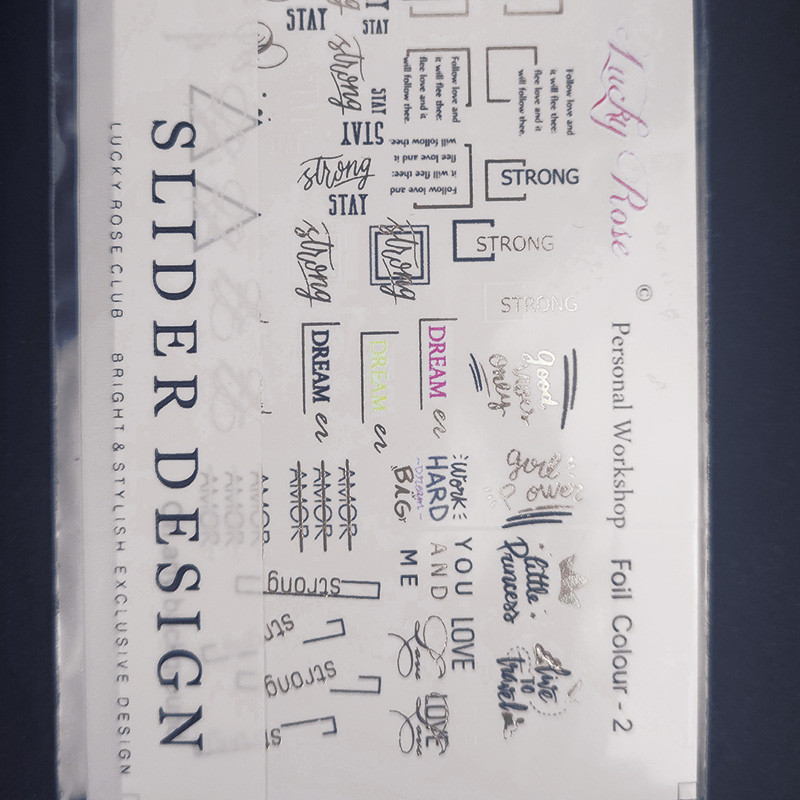 Lucky Rose ©
Personal Workshop Foil Colour - 2
STRONG
STRONG
STRONG
good
vibes
only
girl
power
little
Princess
live
TO
travel
Follow love and
it will flee thee:
flee love and it
will follow thee.
Follow love and
it will flee thee:
flee love and it
will follow thee.
Follow love and
it will flee thee:
flee love and it
will follow thee.
STAY
STAY
strong
STAY
STAY
strong
STAY
strong
strong
DREAM
er
DREAM
er
DREAM
er
Work
HARD
Dream
BIG
YOU LOVE
AND
ME
Love
LOVE
Love
AMOR
AMOR
AMOR
AMOR
strong
str
strong
st
SLIDER DESIGN
LUCKY ROSE CLUB BRIGHT & STYLISH EXCLUSIVE DESIGN